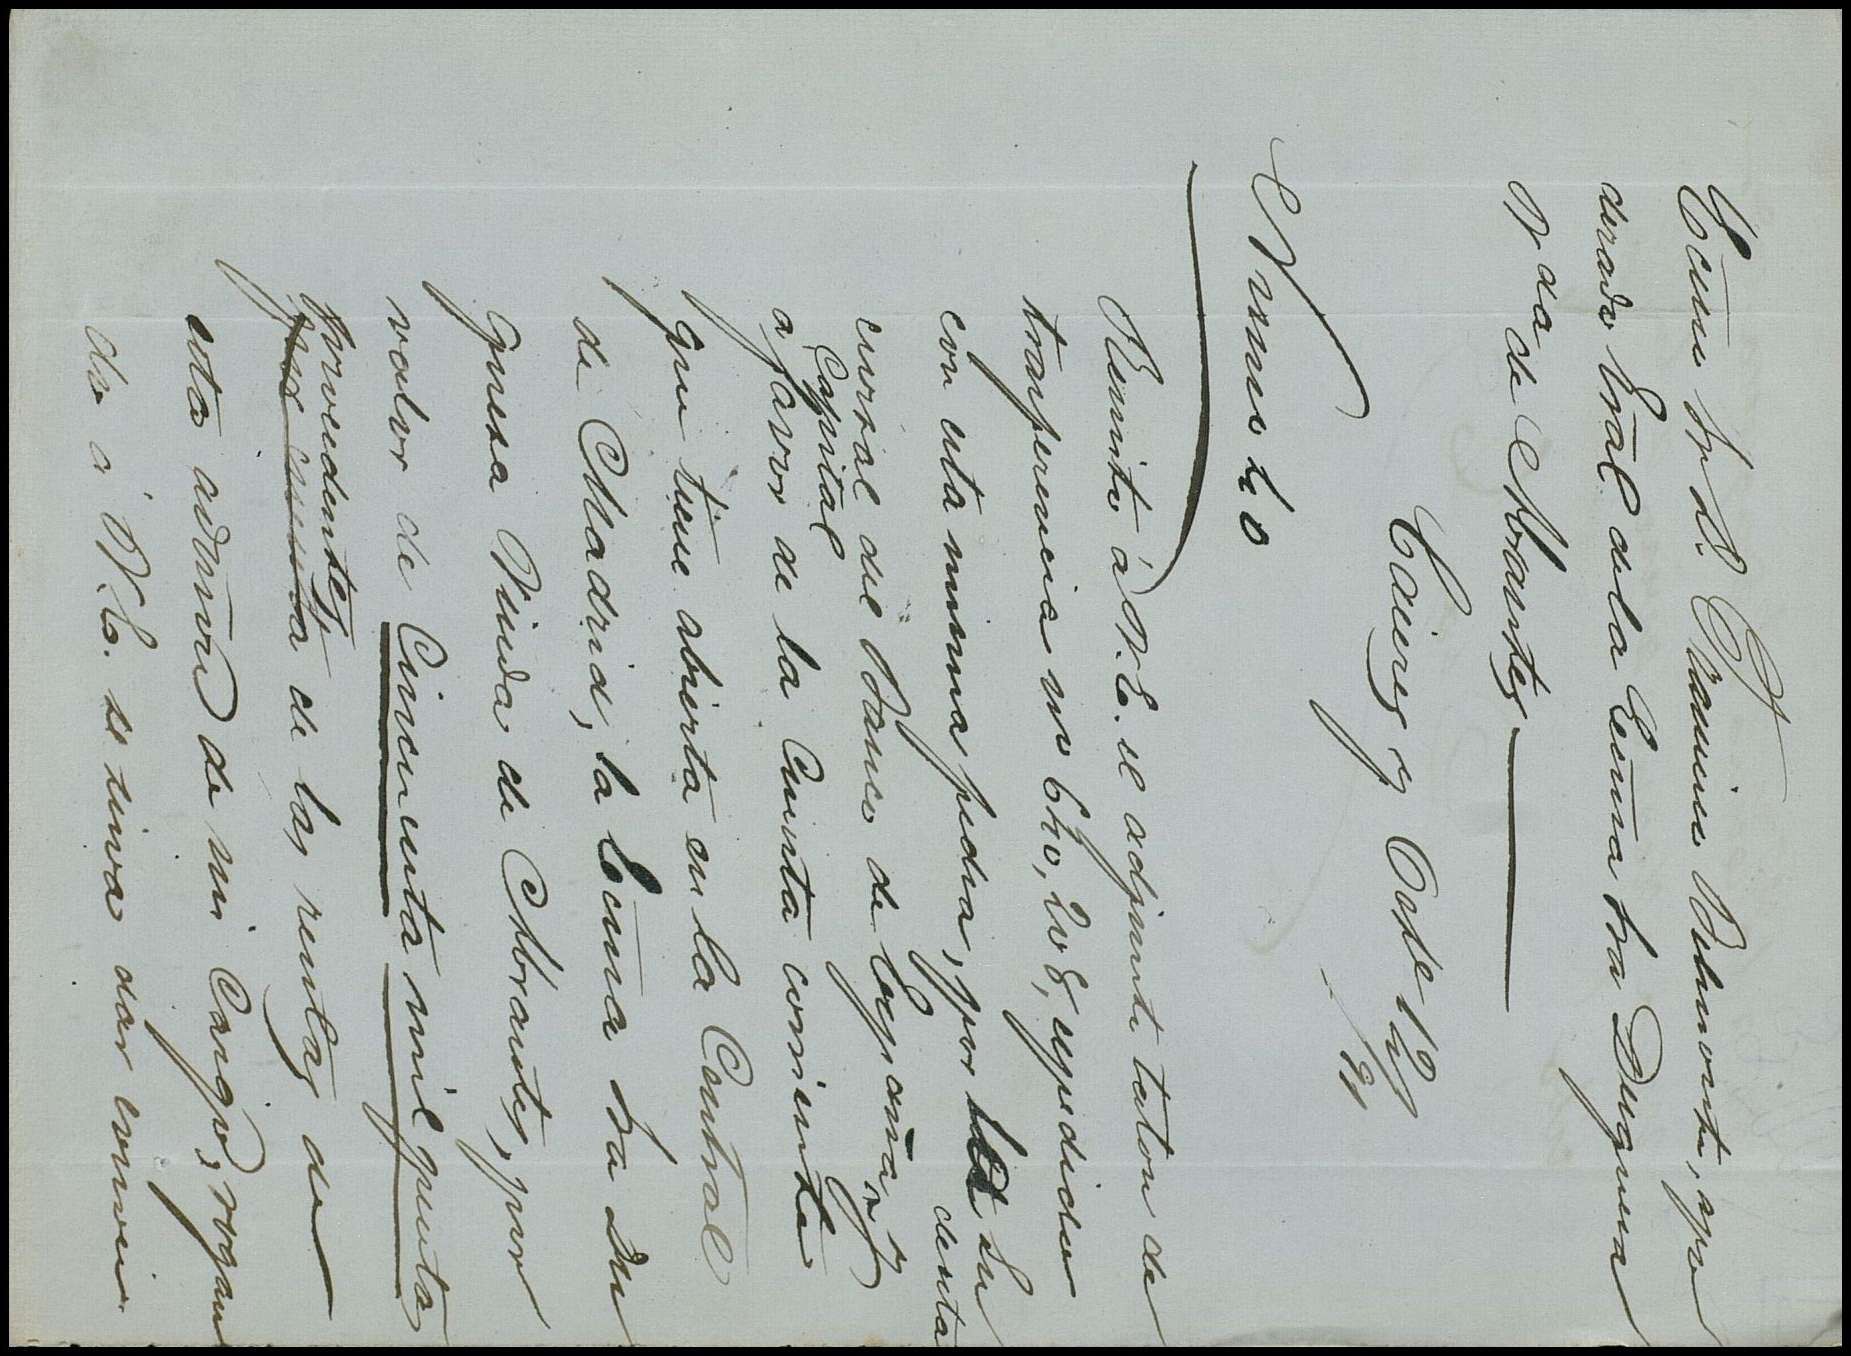 Ecmo Sr. D. Vicunio Belmonte, apo
derado Gral. de la Ecma Sra Duquesa
Vda de Abrantes
Caires y Obre 12/
91
Numo 40
Remito á V.E. el adjunto talon de
trasferencia no 640,208, expedido
con esta misma fecha, por la Su
cursal del Banco de España en esta
Capital
a favor de la Cuenta corriente
que tiene abierta en la Central
de Madrid, la Ecma Sra Du
quesa Viuda de Abrantes, por
valor de Cincuenta mil pesetas
procedentes
por cuenta de las rentas de
esta admon de mi Cargo, rogan
do á V.E. se sirva dar conoci-